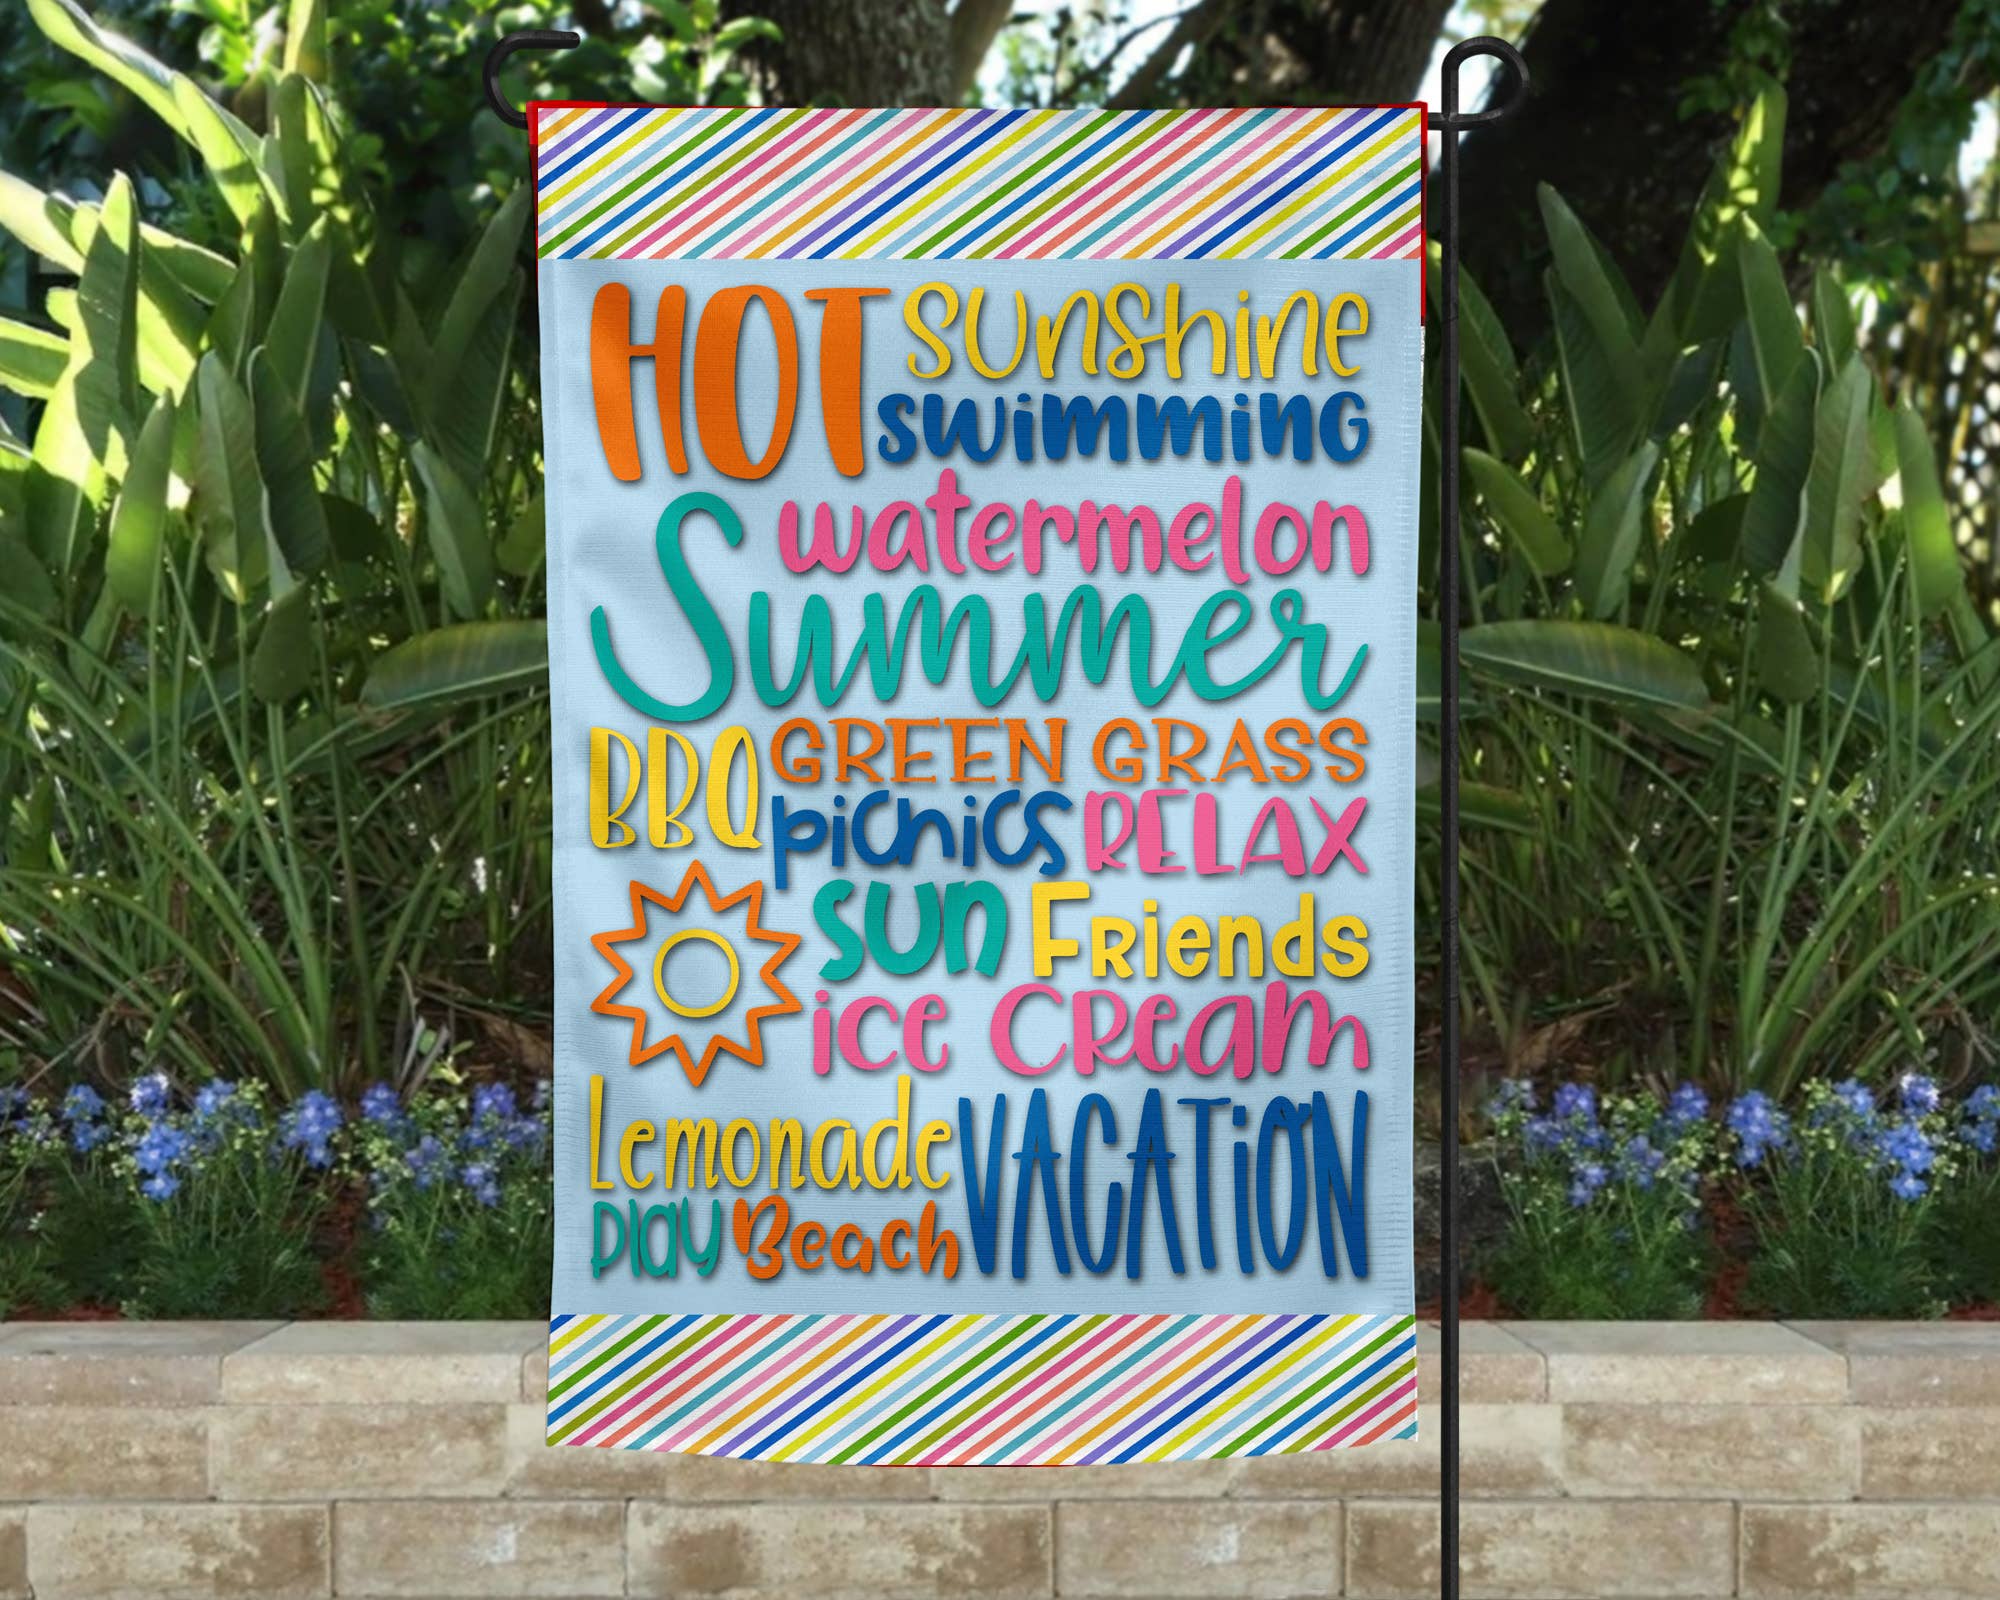 HOT sunshine
swimming
watermelon
Summer
BBQ GREEN GRASS
picnics RELAX
sun Friends
ice cream
Lemonade VACATION
play Beach